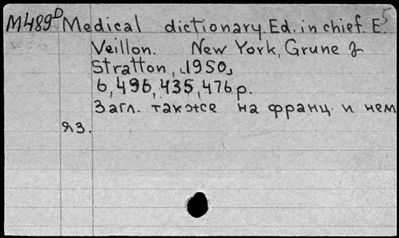 M489D Medical dictionary. Ed. in chief. E. 5
Veillon. New York, Grune &
Stratton, 1950,
6, 496, 435, 476 p.
Загл. также на франц. и нем
яз.